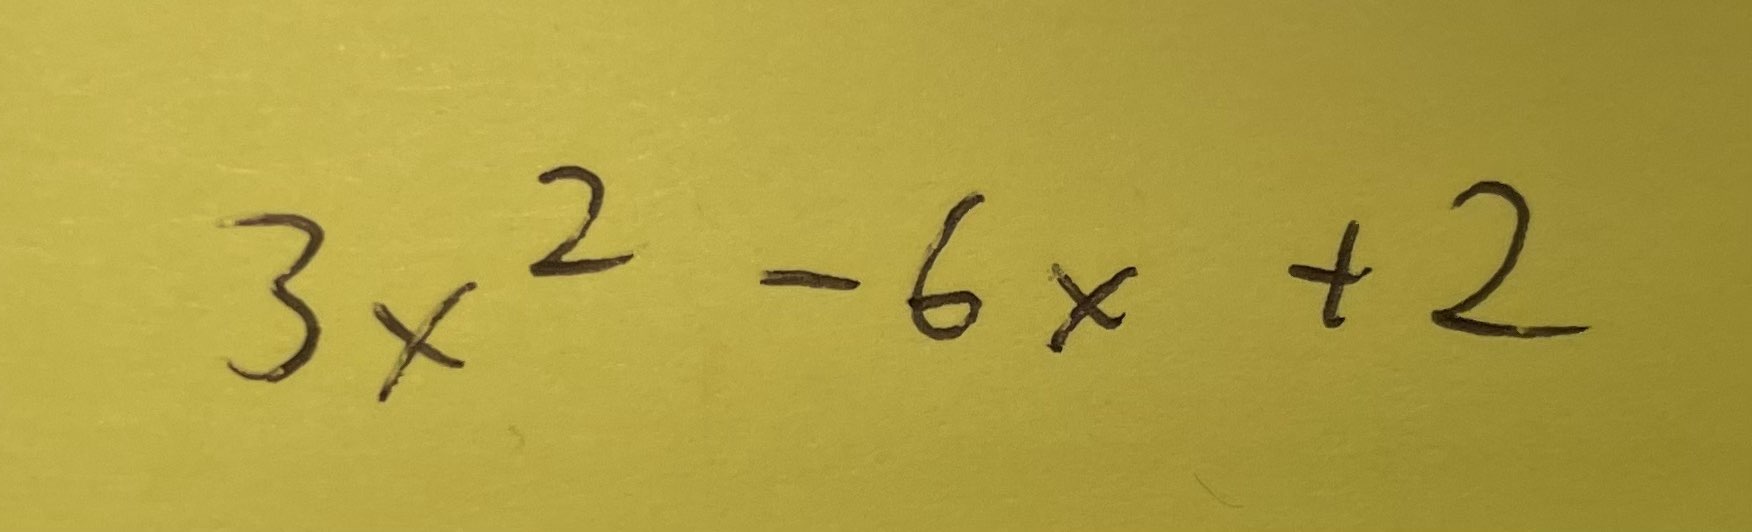 3x² - 6x + 2